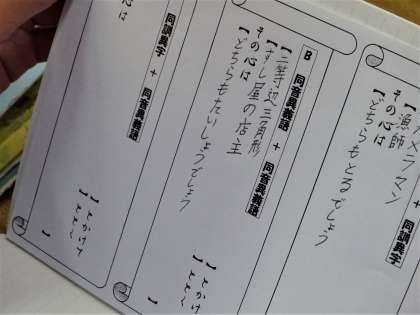 同訓異字
メラマン
【漁師
その心は
【どちらもとるでしょう
B 同音異義語 + 同音異義語
【二等辺三角形 】とかけて
【すし屋の店主 】ととく
その心は
【どちらもたいしょうでしょう 】
同訓異字 + 同音異義語
】とかけて
】ととく
心は
】